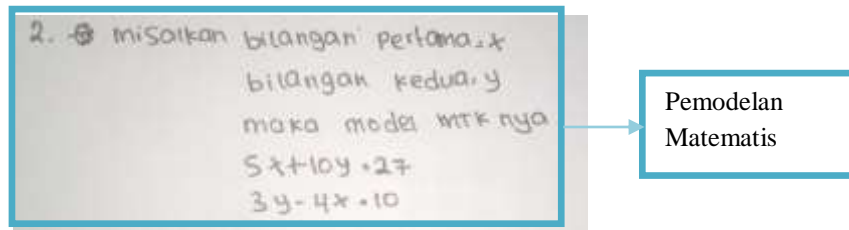 2. misalkan bilangan pertama = x
bilangan kedua = y
maka model mtk nya
5x + 10y = 27
3y - 4x = 10
Pemodelan
Matematis